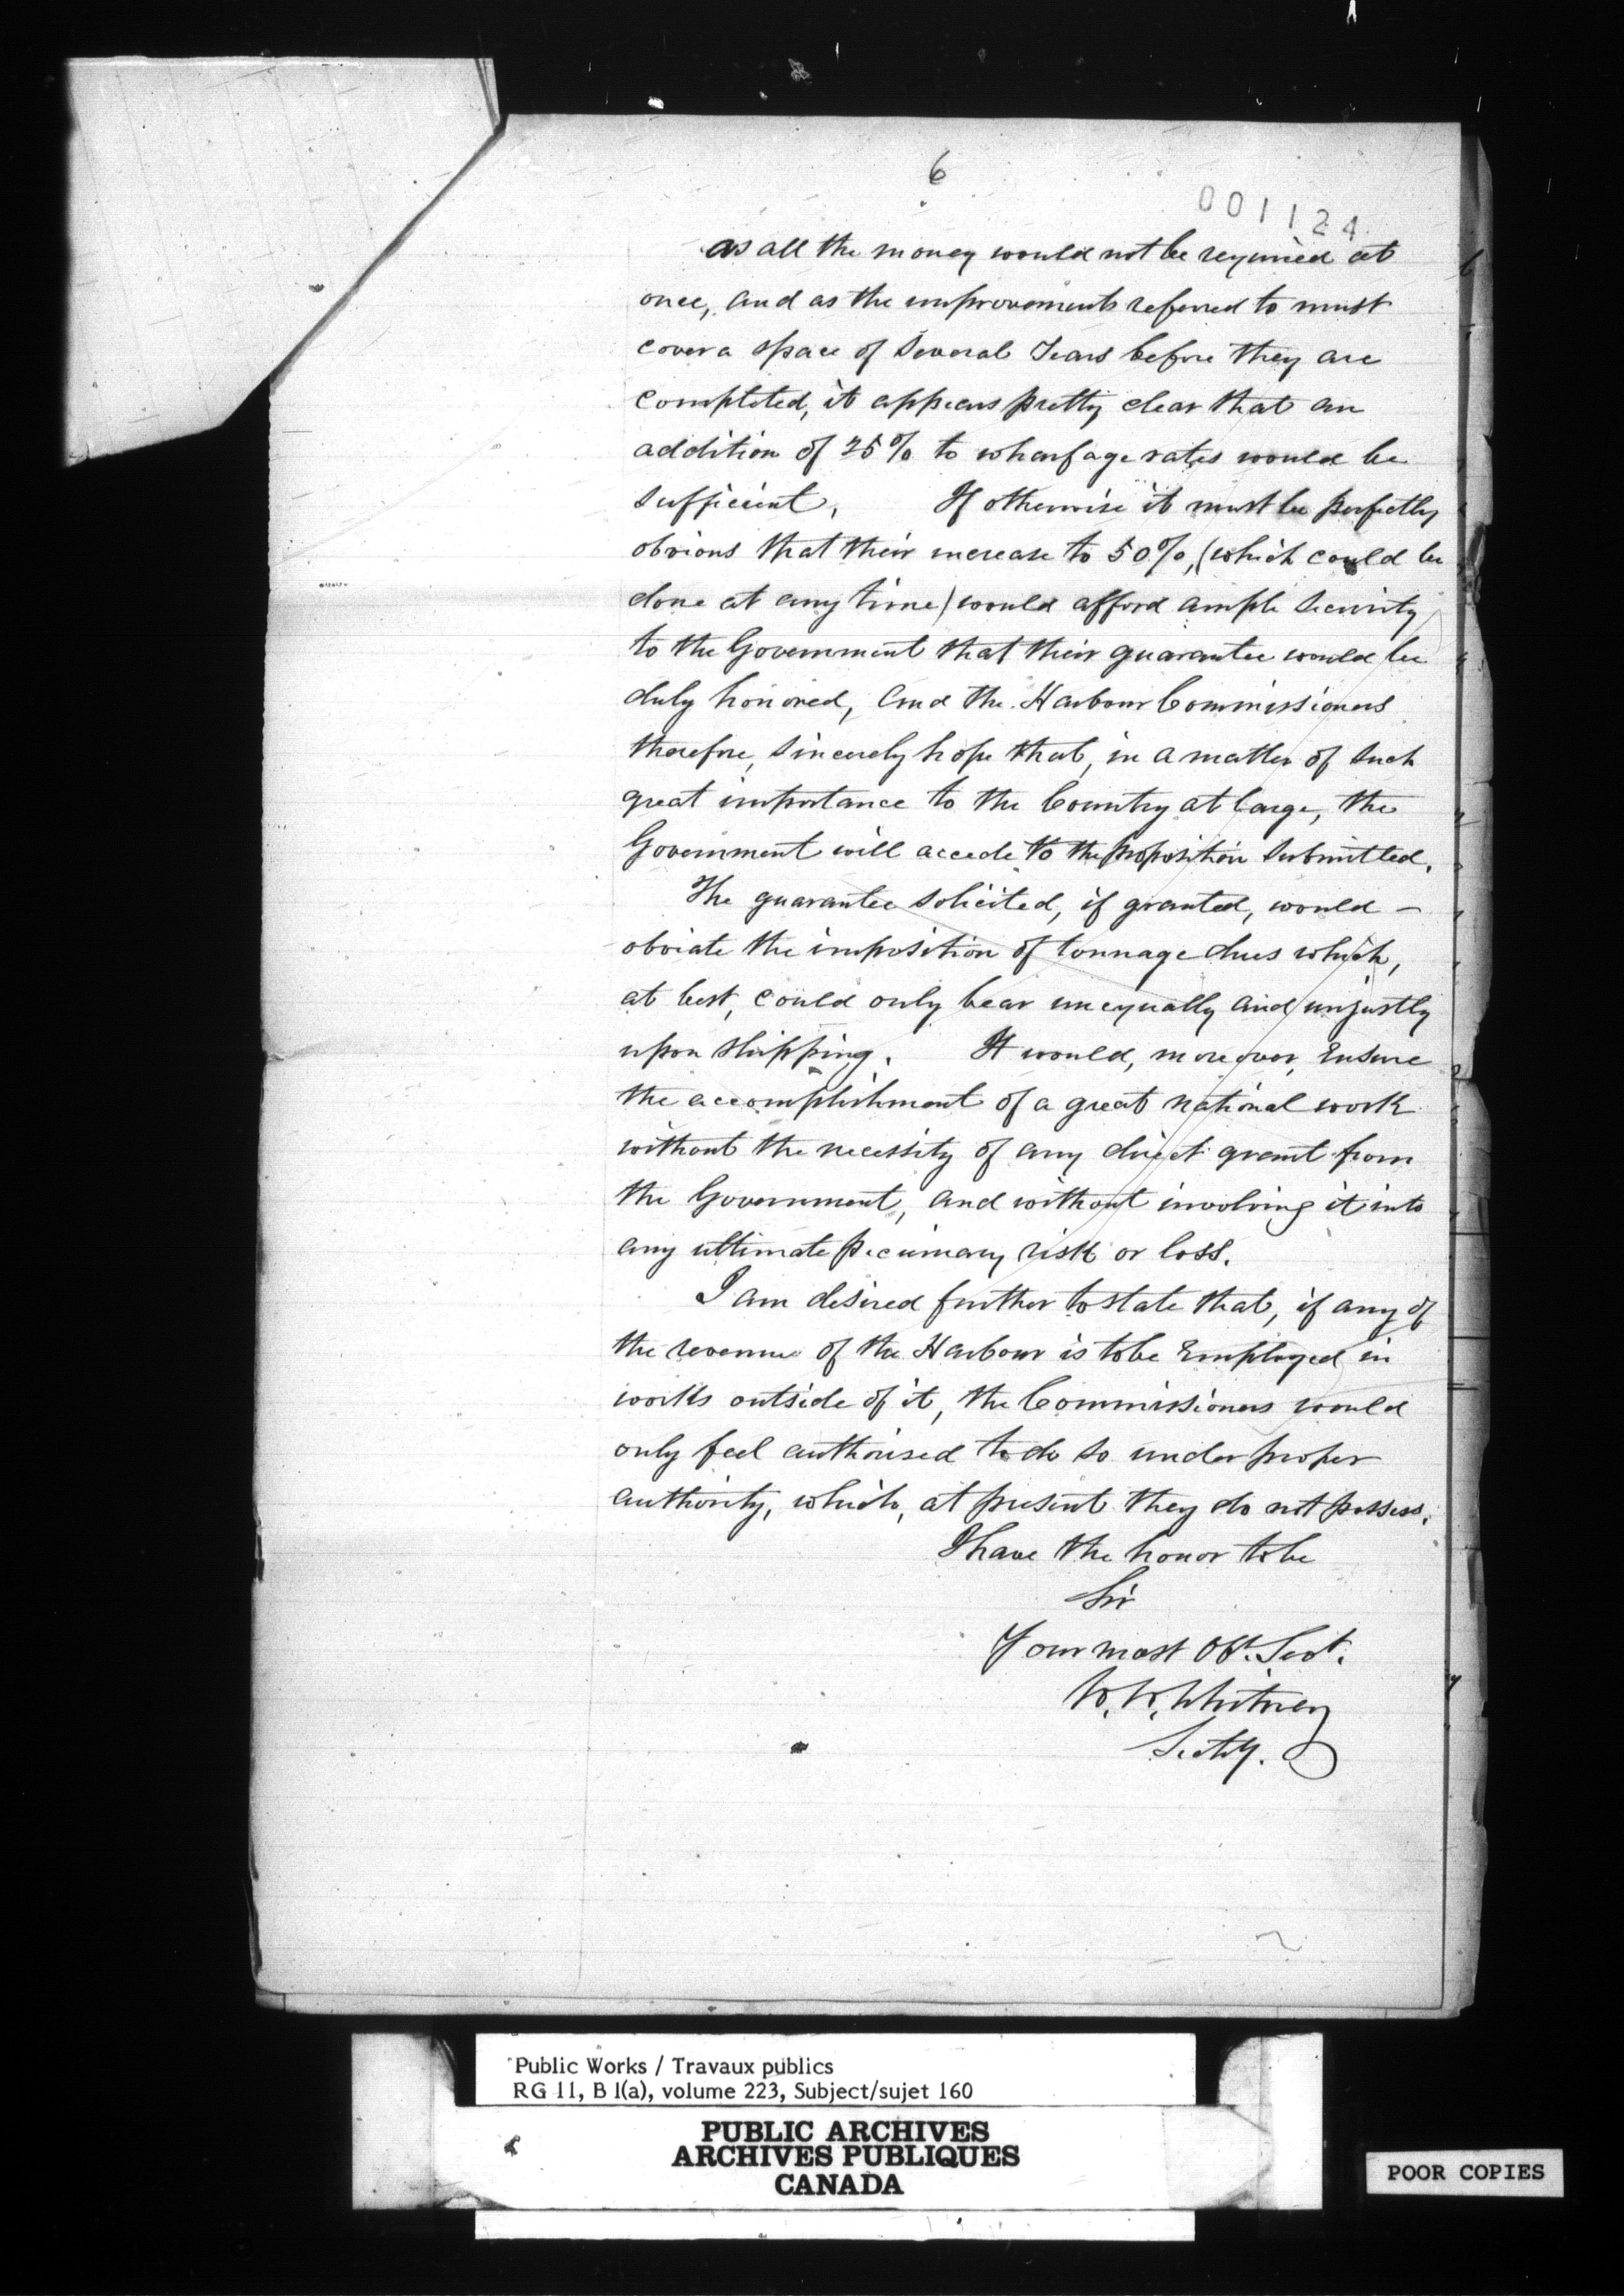 6
001124
as all the money would not be required at
once, and as the improvements referred to must
cover a space of several Years before they are
completed, it appears pretty clear that an
addition of 25% to wharfage rates would be
sufficient. If otherwise it must be perfectly
obvious that their increase to 50%, (which could be
done at any time) would afford ample security
to the Government that their guarantee would be
duly honored, and the Harbour Commissioners
therefore, sincerely hope that, in a matter of such
great importance to the Country at large, the
Government will accede to the proposition submitted.
The guarantee solicited, if granted, would –
obviate the imposition of tonnage dues which,
at best, could only bear unequally and unjustly
upon shipping. It would, moreover, Ensure
the accomplishment of a great national work
without the necessity of any direct grant from
the Government, and without involving it into
any ultimate pecuniary risk or loss.
I am desired further to state that, if any of
the revenue of the Harbour is to be Employed in
works outside of it, the Commissioners would
only feel authorised to do so under proper
authority, which, at present they do not possess.
I have the honor to be
Sir
Your most Obt. Servt.
W. W. Whitney
Secty.
Public Works / Travaux publics
RG 11, B 1(a), volume 223, Subject/sujet 160
PUBLIC ARCHIVES
ARCHIVES PUBLIQUES
CANADA
POOR COPIES